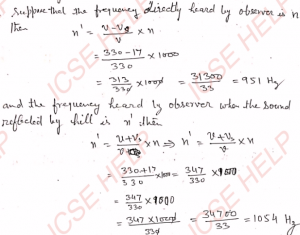 Suppose that the frequency directly heard by observer is n
then
n' = (v - v₀)/v × n
= (330 - 17)/330 × 1000
= 313/330 × 1000 = 31300/33 = 951 Hz
and the frequency heard by observer when the sound
reflected by hill is n' then
n' = × n ⇒ n' = × n
= (330 + 17)/330 × 1000 = 347/330 × 1000
= 347/330 × 1000
= (347 × 1000)/330 = 34700/33 = 1054 Hz
ICSE HELP